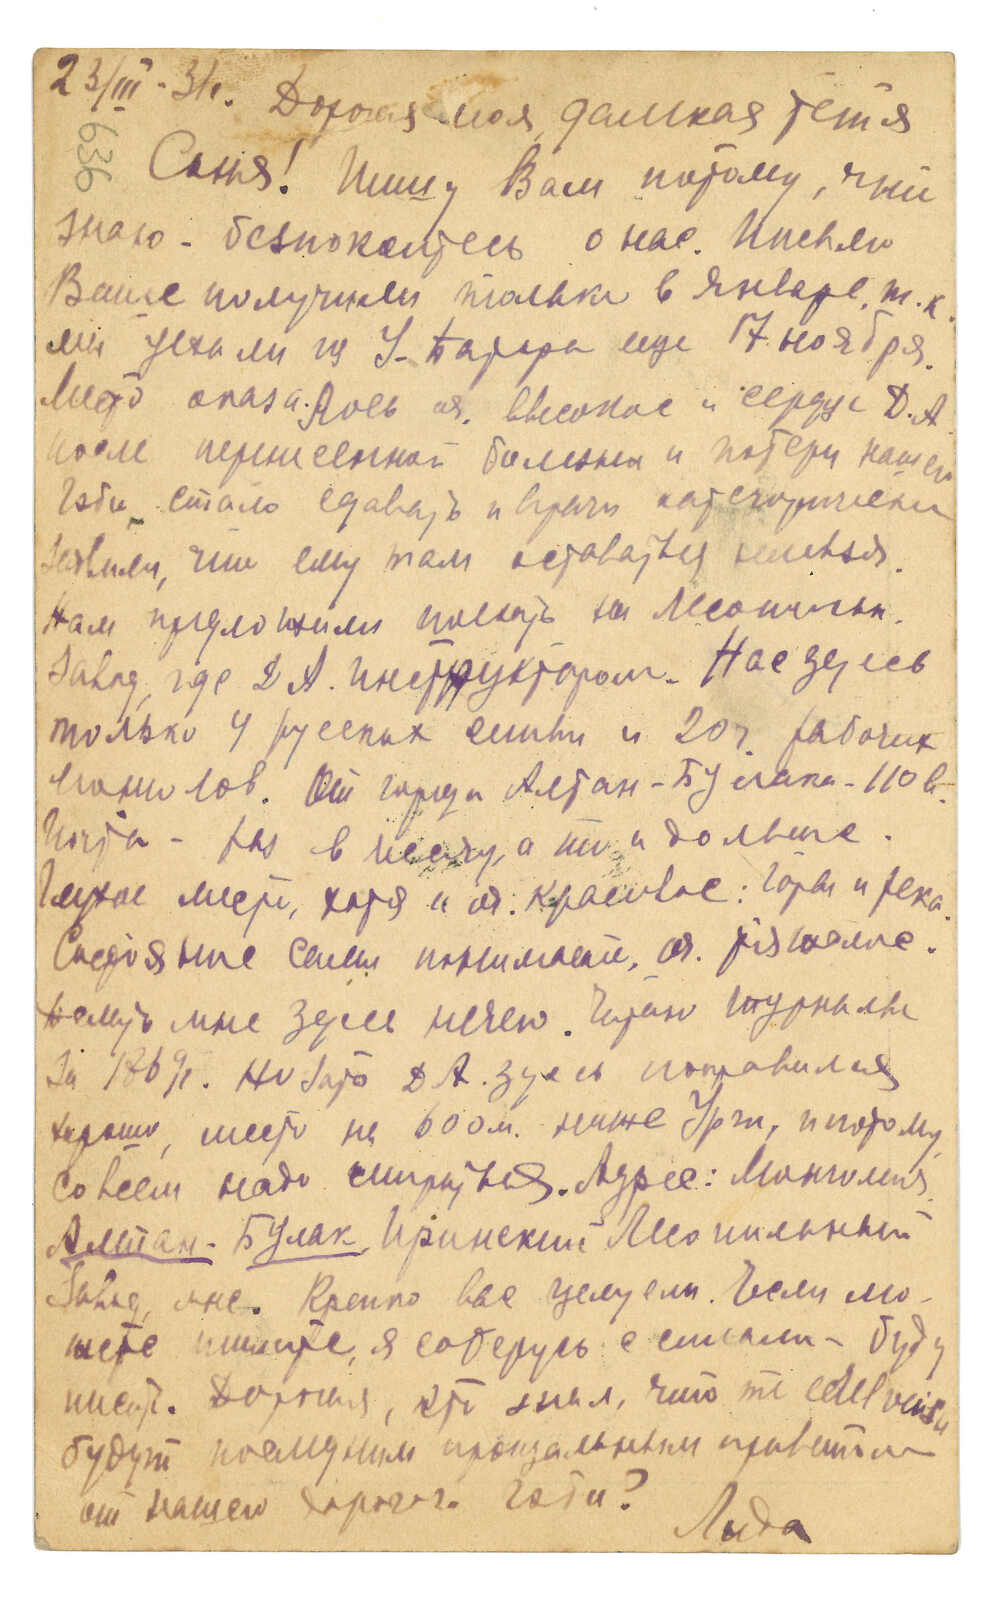 23/III-31.
636
Дорогая моя, далекая тетя
Саня! Пишу Вам потому, что
знаю - безпокоитесь о нас. Письмо
Ваше получили только в январе, т.к.
мы уехали из У-Батора еще 17 ноября.
Место оказалось оч. высокое и сердце Д.А.
после перенесенной болезни и потери нашего
Гэти стало сдавать и врачи категорически
заявили, что ему там оставаться нельзя.
Нам предложили поехать на Лесопильн.
Завод, где Д.А. инструктором. Нас здесь
только 4 русских семьи и 20 ч. рабочих
монголов. От города Алтан-Булака - 110 в.
Почта - раз в месяц, а то и дольше.
Глухое место, хотя и оч. красивое: горы и река.
Состояние сами понимаете, оч. тяжелое.
Делать мне здесь нечего. Читаю журналы
за 1869г. Но зато Д.А. здесь поправился
хорошо, место на 600 м. ниже Урги, и потому
совсем надо смириться. Адрес: Монголия
Алтан-Булак, Иринский Лесопильный
Завод, мне. Крепко вас целуем. Если мо-
жете пишите, я соберусь с силами - буду
писать. Дорогая, кто знал, что те
будут последним прощальным приветом
от нашего дорогого Гэти?
Лида